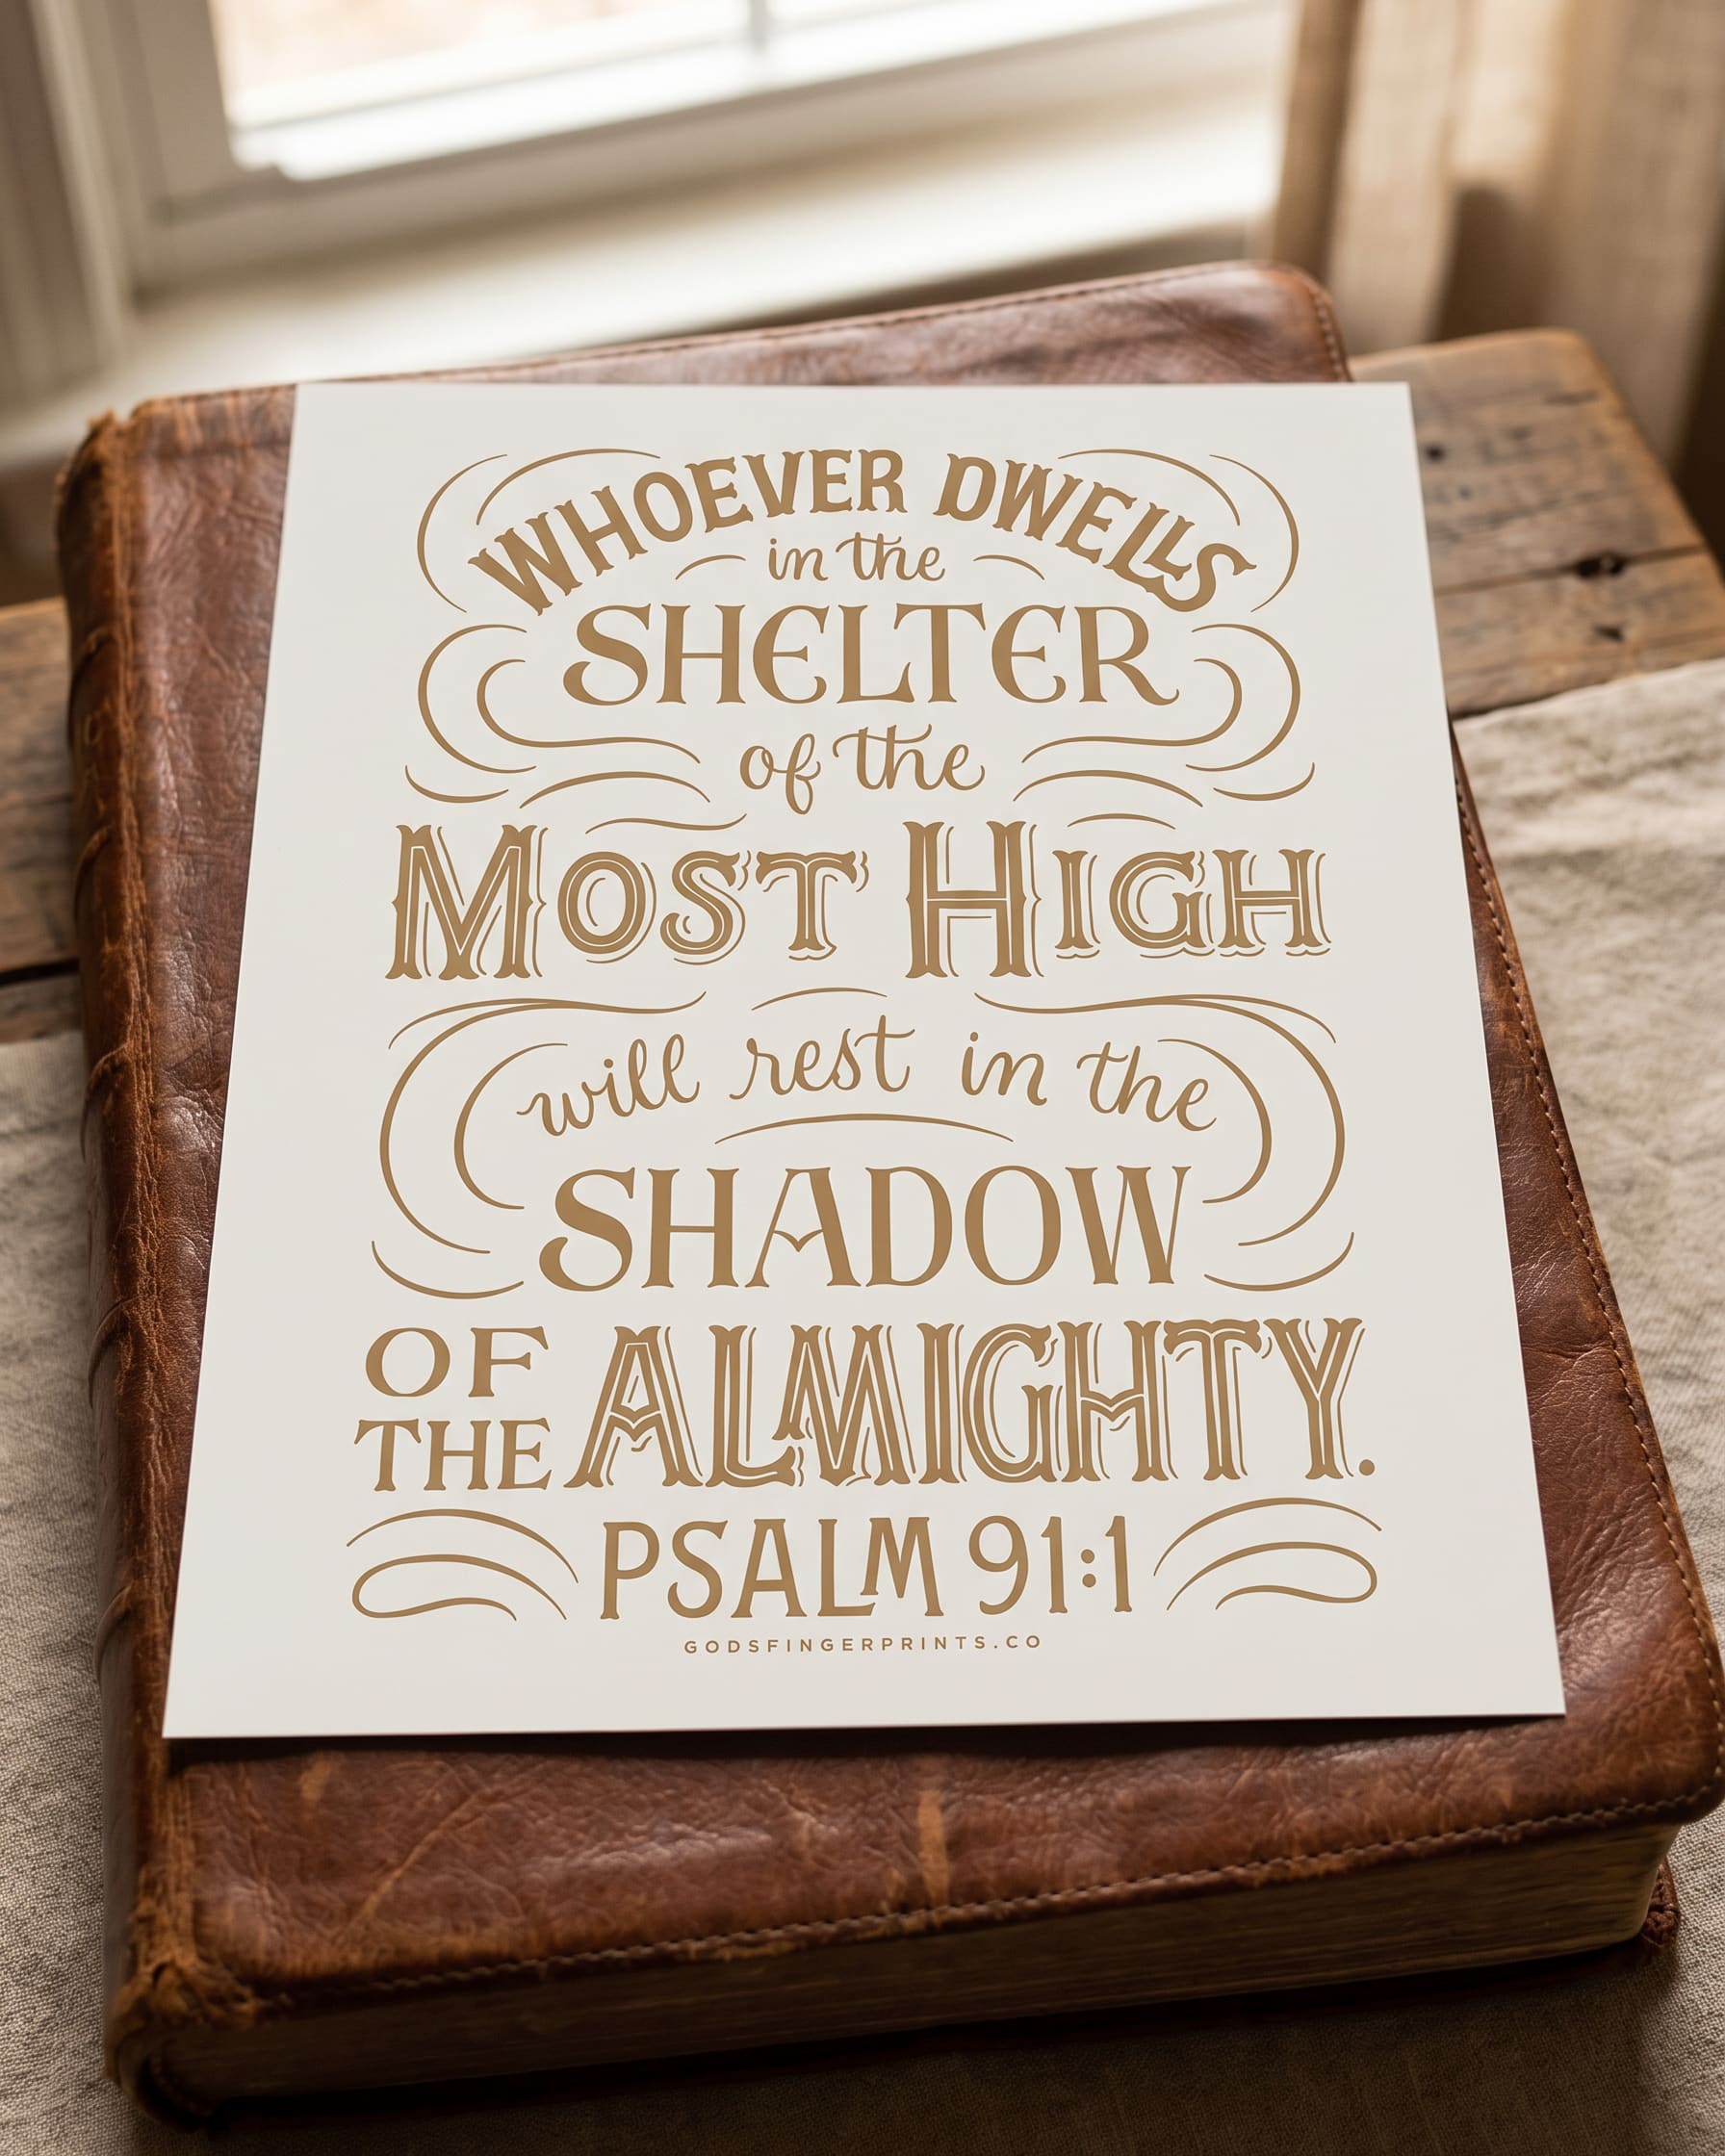 WHOEVER DWELLS
in the
SHELTER
of the
MOST HIGH
will rest in the
SHADOW
OF THE ALMIGHTY.
PSALM 91:1
GODSFINGERPRINTS.CO